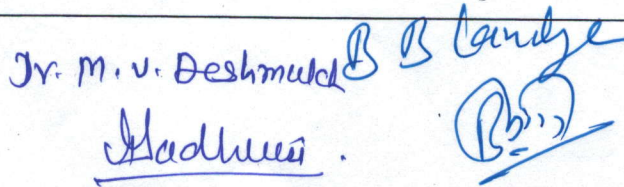 Dr. M. V. Deshmukh B B Landge
Madhuri.